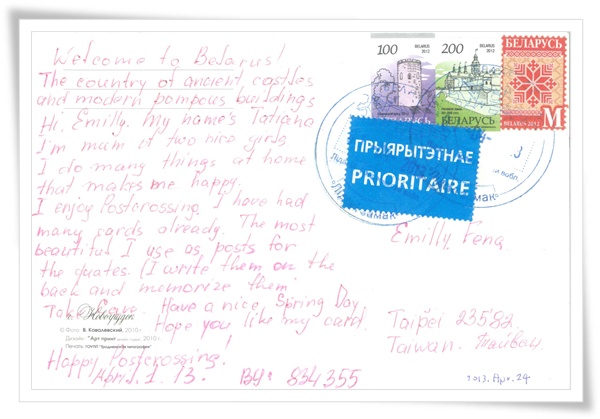 Welcome to Belarus!
The country of ancient castles
and modern pompous buildings
Hi, Emilly, My name's Tatiana
I'm mum of two nice girls,
I do many things at home
that makes me happy.
I enjoy Postcrossing. I have had
many cards already. The most
beautiful I use as posts for
the quates. (I write them on the
back and memorize them
Take Care. Have a nice, Spring Day
Hope you like my card.
Happy Postcrossing!
April. 1. 13. BY- 834355
Новогрудок
© Фото: В. Ковалевский, 2010 г.
2010 г.
100 БЕЛАРУСЬ 2012
200 БЕЛАРУСЬ 2012
БЕЛАРУСЬ
БЕЛАРУСЬ
БЕЛАРУСЬ
BELARUS 2012 M
ПРЫЯРЫТЭТНАЕ
PRIORITAIRE
Emilly Feng
Taipei 23582,
Taiwan. Тайвань
2013. Apr. 24